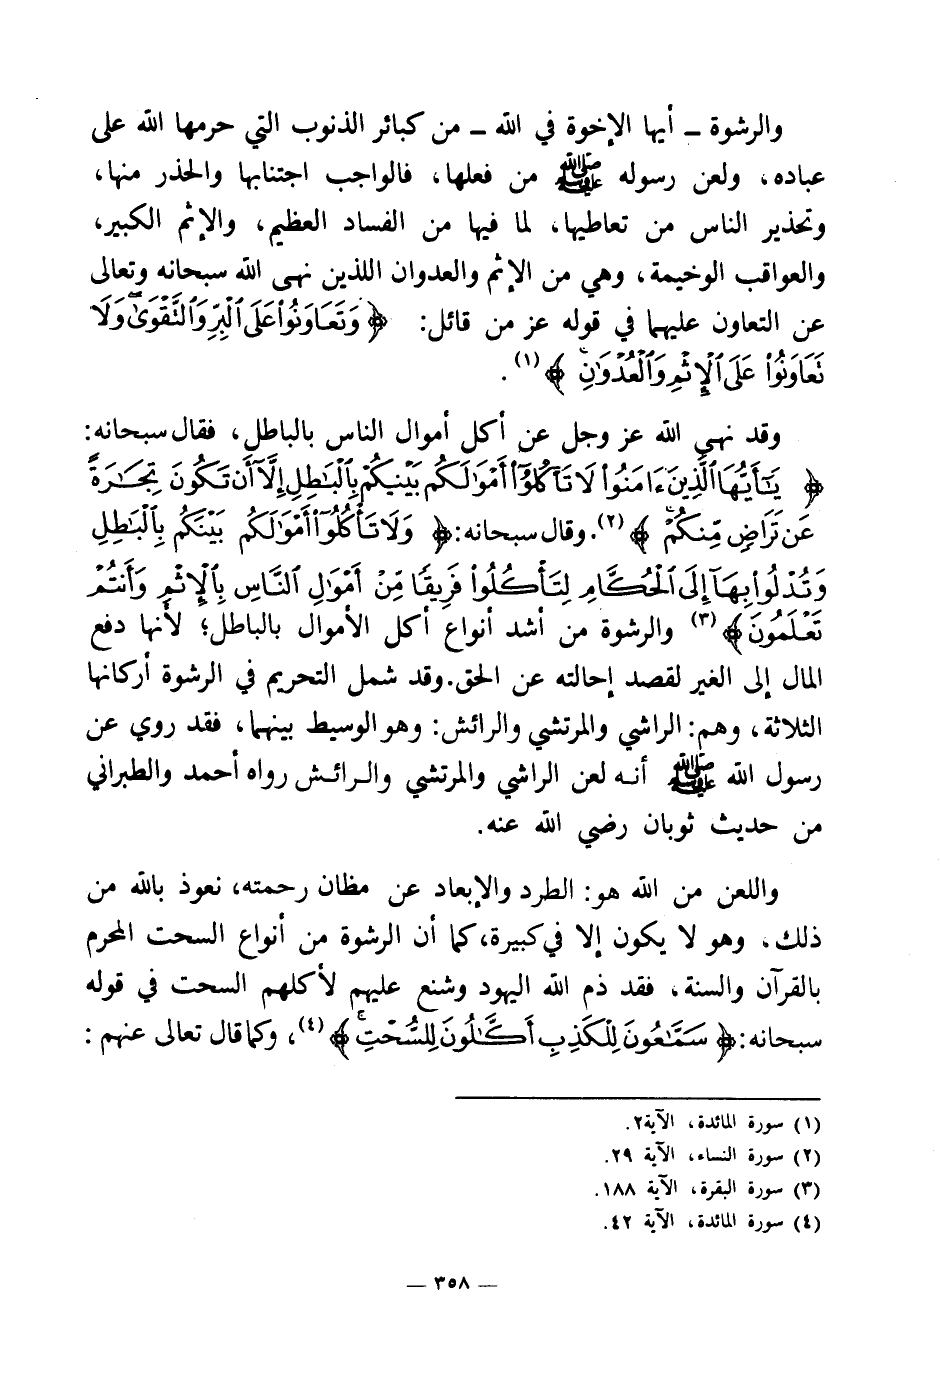 والرشوة ـ أيها الإخوة في الله ـ من كبائر الذنوب التي حرمها الله على
عباده، ولعن رسوله ﷺ من فعلها، فالواجب اجتنابها والحذر منها،
وتحذير الناس من تعاطيها، لما فيها من الفساد العظيم، والإثم الكبير،
والعواقب الوخيمة، وهي من الإثم والعدوان اللذين نهى الله سبحانه وتعالى
عن التعاون عليهما في قوله عز من قائل: ﴿ وَتَعَاوَنُوا۟ عَلَى ٱلْبِرِّ وَٱلتَّقْوَىٰ ۖ وَلَا
تَعَاوَنُوا۟ عَلَى ٱلْإِثْمِ وَٱلْعُدْوَٰنِ ۚ ﴾ (١) .
وقد نهى الله عز وجل عن أكل أموال الناس بالباطل، فقال سبحانه:
﴿ يَٰٓأَيُّهَا ٱلَّذِينَ ءَامَنُوا۟ لَا تَأْكُلُوٓا۟ أَمْوَٰلَكُم بَيْنَكُم بِٱلْبَٰطِلِ إِلَّآ أَن تَكُونَ تِجَٰرَةً
عَن تَرَاضٍ مِّنكُمْ ۚ ﴾ (٢). وقال سبحانه: ﴿ وَلَا تَأْكُلُوٓا۟ أَمْوَٰلَكُم بَيْنَكُم بِٱلْبَٰطِلِ
وَتُدْلُوا۟ بِهَآ إِلَى ٱلْحُكَّامِ لِتَأْكُلُوا۟ فَرِيقًا مِّنْ أَمْوَٰلِ ٱلنَّاسِ بِٱلْإِثْمِ وَأَنتُمْ
تَعْلَمُونَ ﴾ (٣) والرشوة من أشد أنواع أكل الأموال بالباطل؛ لأنها دفع
المال إلى الغير لقصد إحالته عن الحق. وقد شمل التحريم في الرشوة أركانها
الثلاثة، وهم: الراشي والمرتشي والرائش: وهو الوسيط بينهما، فقد روي عن
رسول الله ﷺ أنه لعن الراشي والمرتشي والرائش رواه أحمد والطبراني
من حديث ثوبان رضي الله عنه.
واللعن من الله هو: الطرد والإبعاد عن مظان رحمته، نعوذ بالله من
ذلك، وهو لا يكون إلا في كبيرة، كما أن الرشوة من أنواع السحت المحرم
بالقرآن والسنة، فقد ذم الله اليهود وشنع عليهم لأكلهم السحت في قوله
سبحانه: ﴿ سَمَّٰعُونَ لِلْكَذِبِ أَكَّٰلُونَ لِلسُّحْتِ ۚ ﴾ (٤)، وكما قال تعالى عنهم:
(١) سورة المائدة، الآية٢.
(٢) سورة النساء، الآية ٢٩.
(٣) سورة البقرة، الآية ١٨٨.
(٤) سورة المائدة، الآية ٤٢.
— ٣٥٨ —